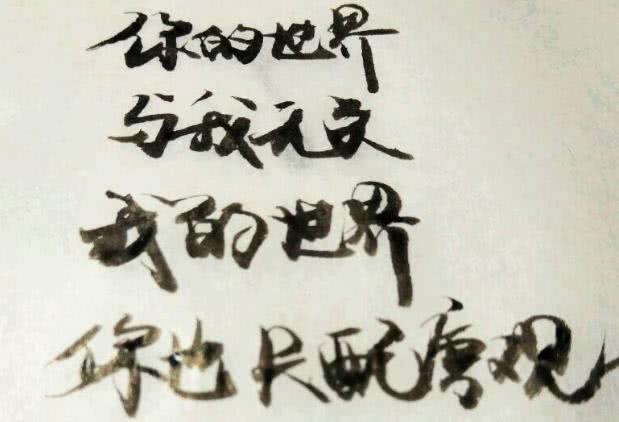 你的世界
与我无交
我的世界
你也只配旁观